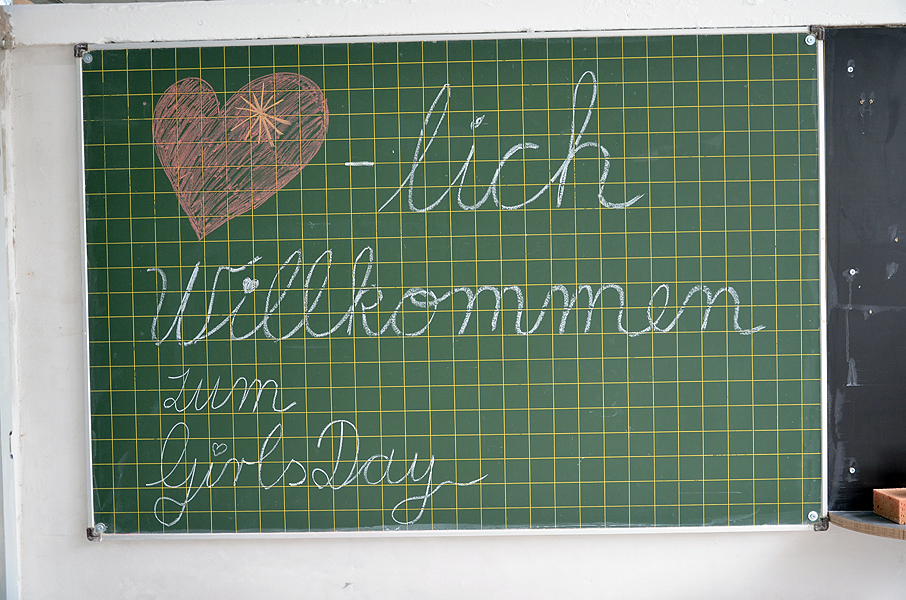 -lich
Willkommen
zum
Girls Day